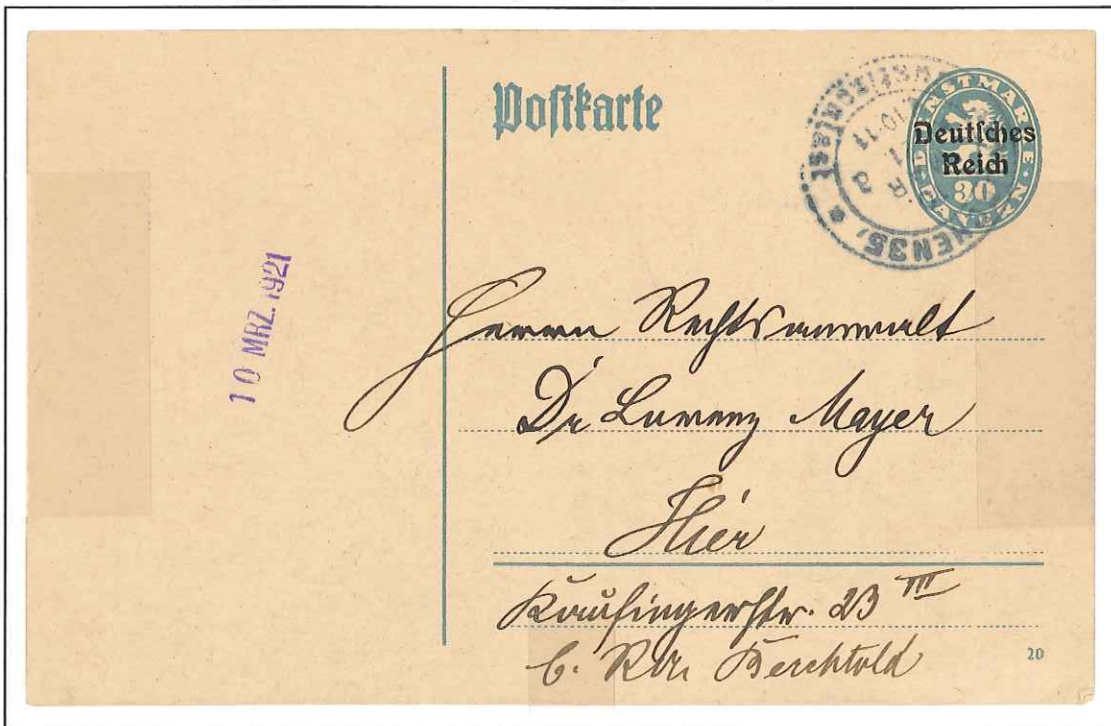 Postkarte
DIENSTMARKE
Deutsches
Reich
30
BAYERN
10 MRZ. 1921
Herrn Rechtsanwalt
Dr Lorenz Mayer
Hier
Kaufingerstr. 23 III
b. RA. Berchtold
20